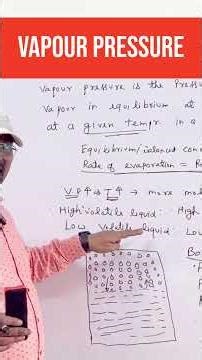 VAPOUR PRESSURE
Vapour pressure is the Press
Vapour in equilibrium at
at a given tempr. in a
Equilibrium/balanced con
Rate of evaporation = R
V.P↑ ⇒ T↑ → more mol
High volatile liquid: High
Low volatile liquid Low
Bo